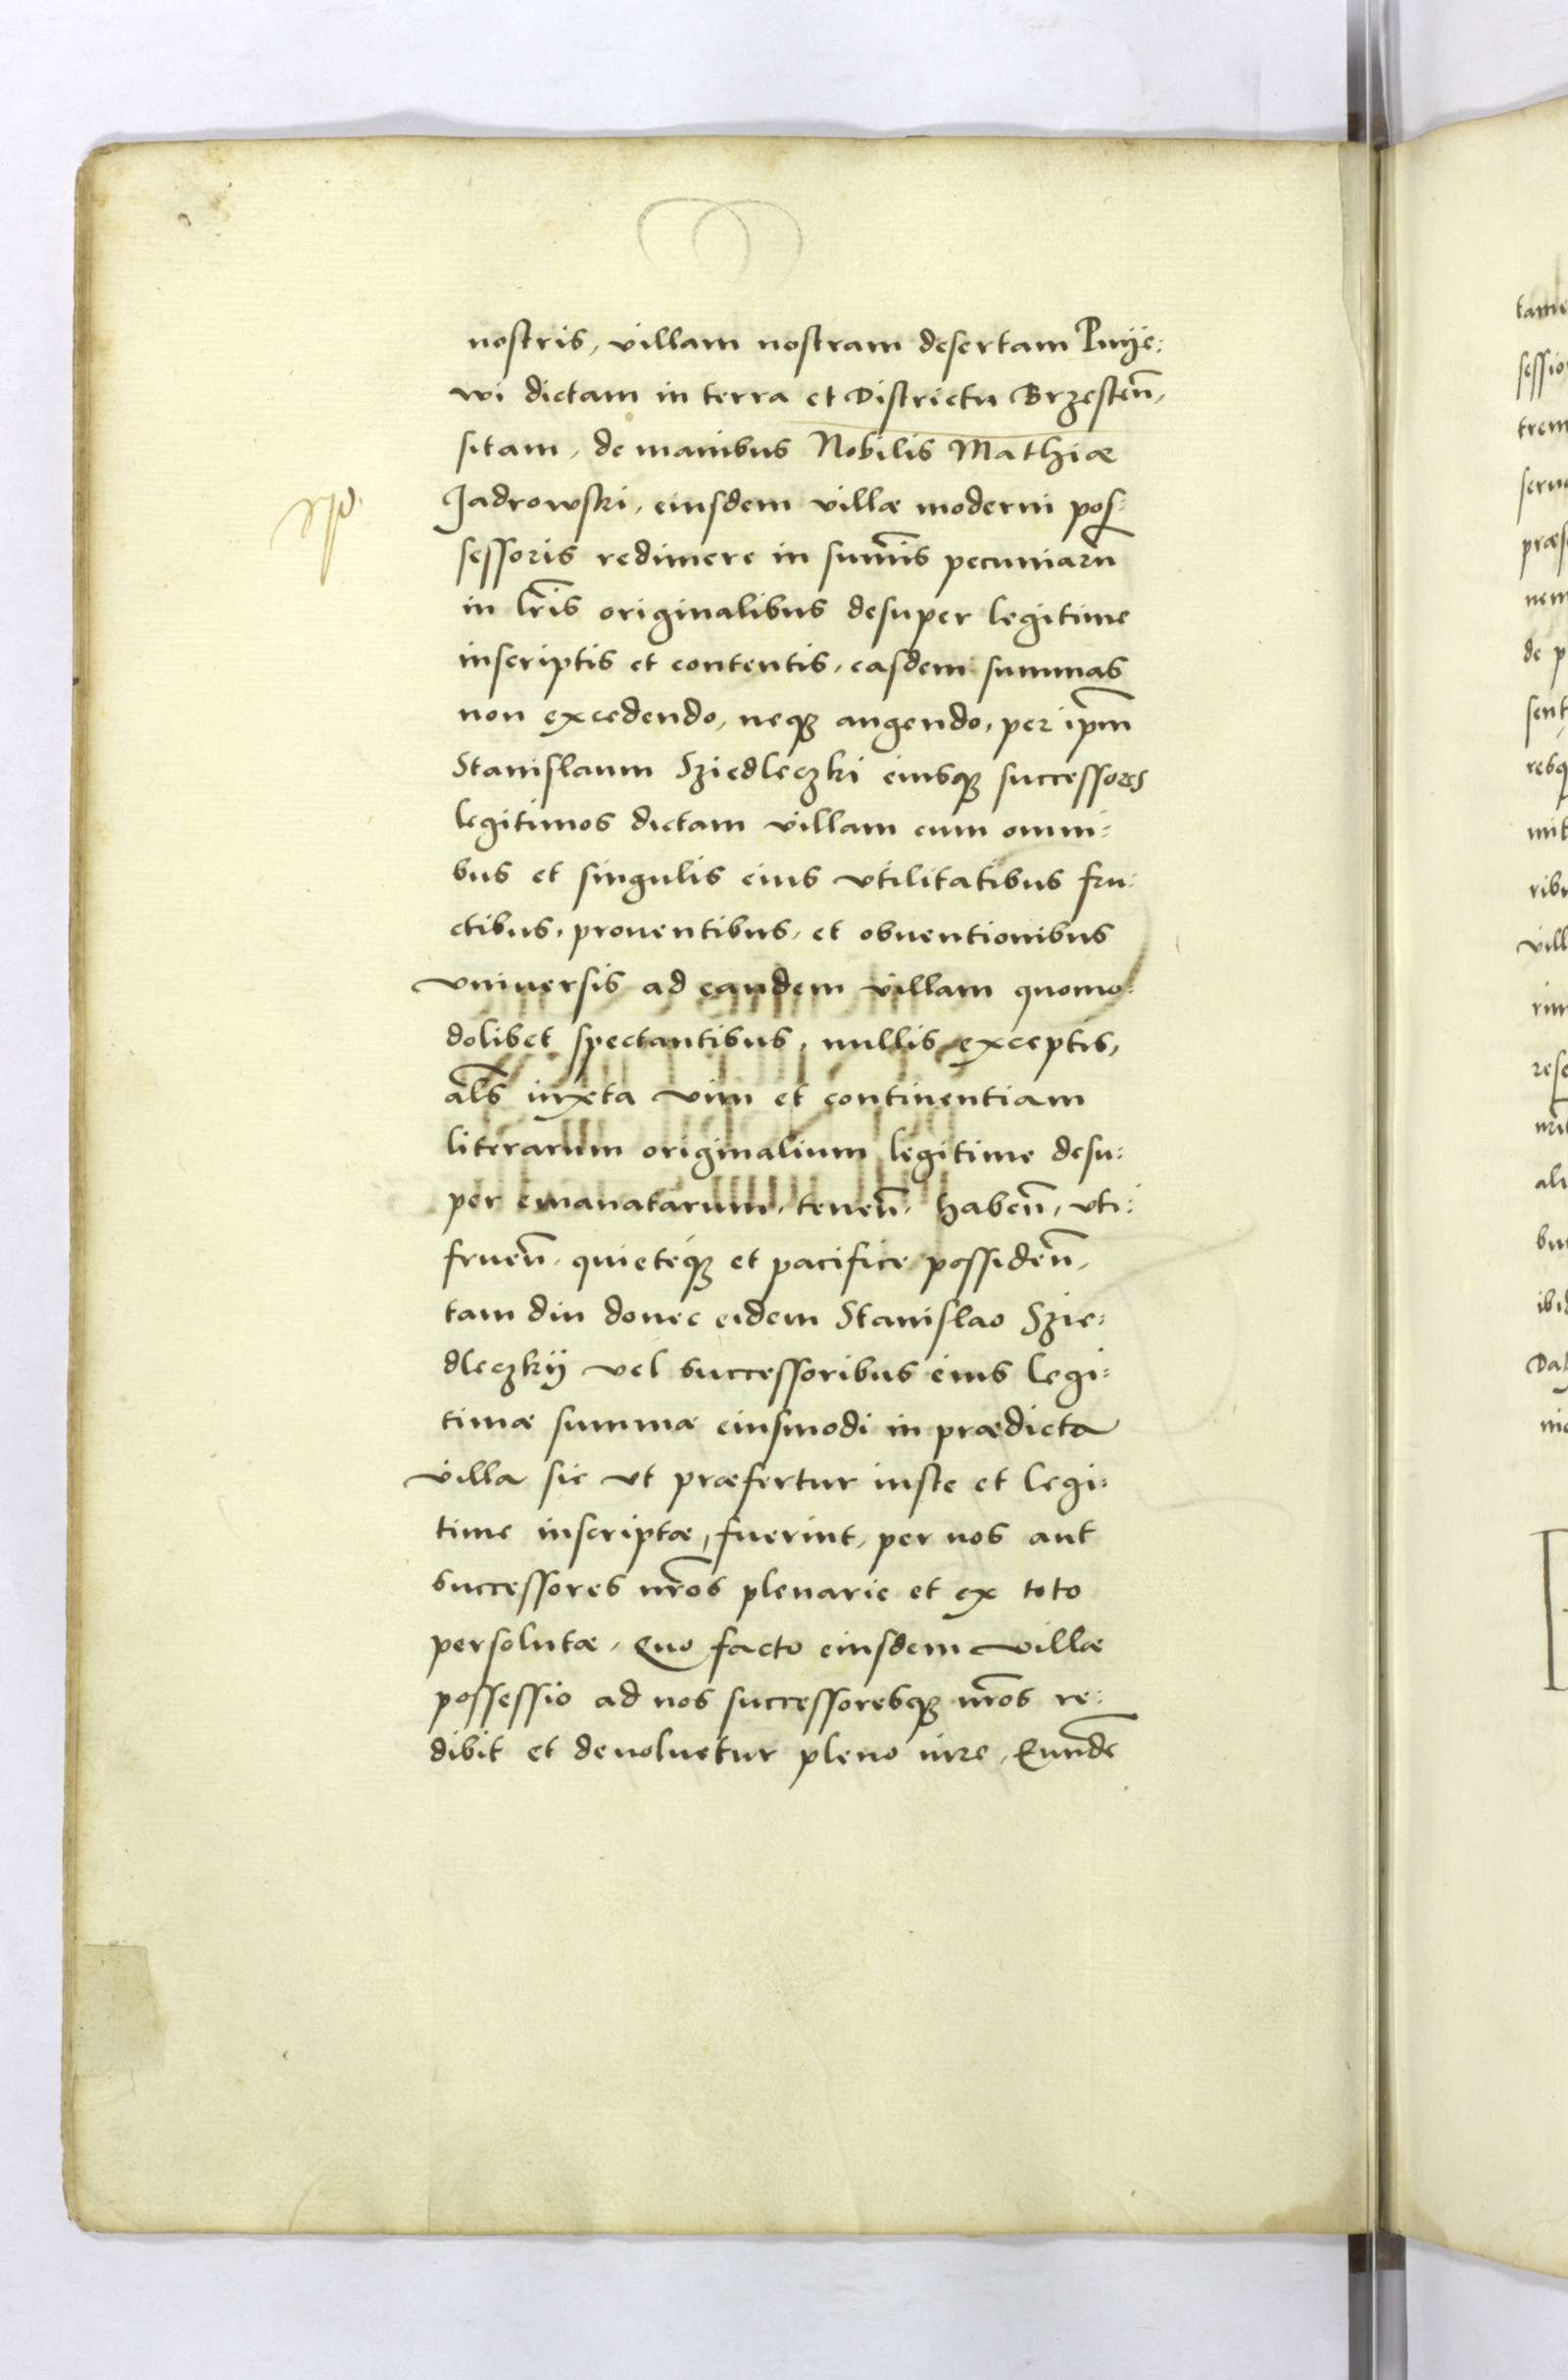 nostris, villam nostram desertam Pnije:
wi dictam in terra et Districtu Brzesteñ,
sitam, de manibus Nobilis Mathiæ
Jadrowski, eiusdem villæ moderni pos:
sessoris redimere in sum̃is pecuniarũ
in lr̃is originalibus desuper legitime
inscriptis et contentis, easdem summas
non excedendo, neqꝫ augendo, per ip̃m
Stanislaum Sziedleczki eiusqꝫ successores
legitimos dictam villam cum omni:
bus et singulis eius vtilitatibus fru:
ctibus, prouentibus, et obuentionibus
vniuersis ad eandem villam quomo:
dolibet spectantibus, nullis exceptis,
al̃s iuxta vim et continentiam
literarum originalium legitime desu:
per emanatarum, teneñ, habeñ, vti:
frueñ, quieteqꝫ et pacifice possideñ,
tam diu donec eidem Stanislao Szie:
dleczkij vel successoribus eius legi:
timæ summæ eiusmodi in prædicta
villa sic vt præfertur iuste et legi:
time inscriptæ, fuerint, per nos aut
successores nr̃os plenarie et ex toto
persolutæ, Quo facto eiusdem villæ
possessio ad nos successoresqꝫ nr̃os re:
dibit et deuoluetur pleno iure, Eundẽ